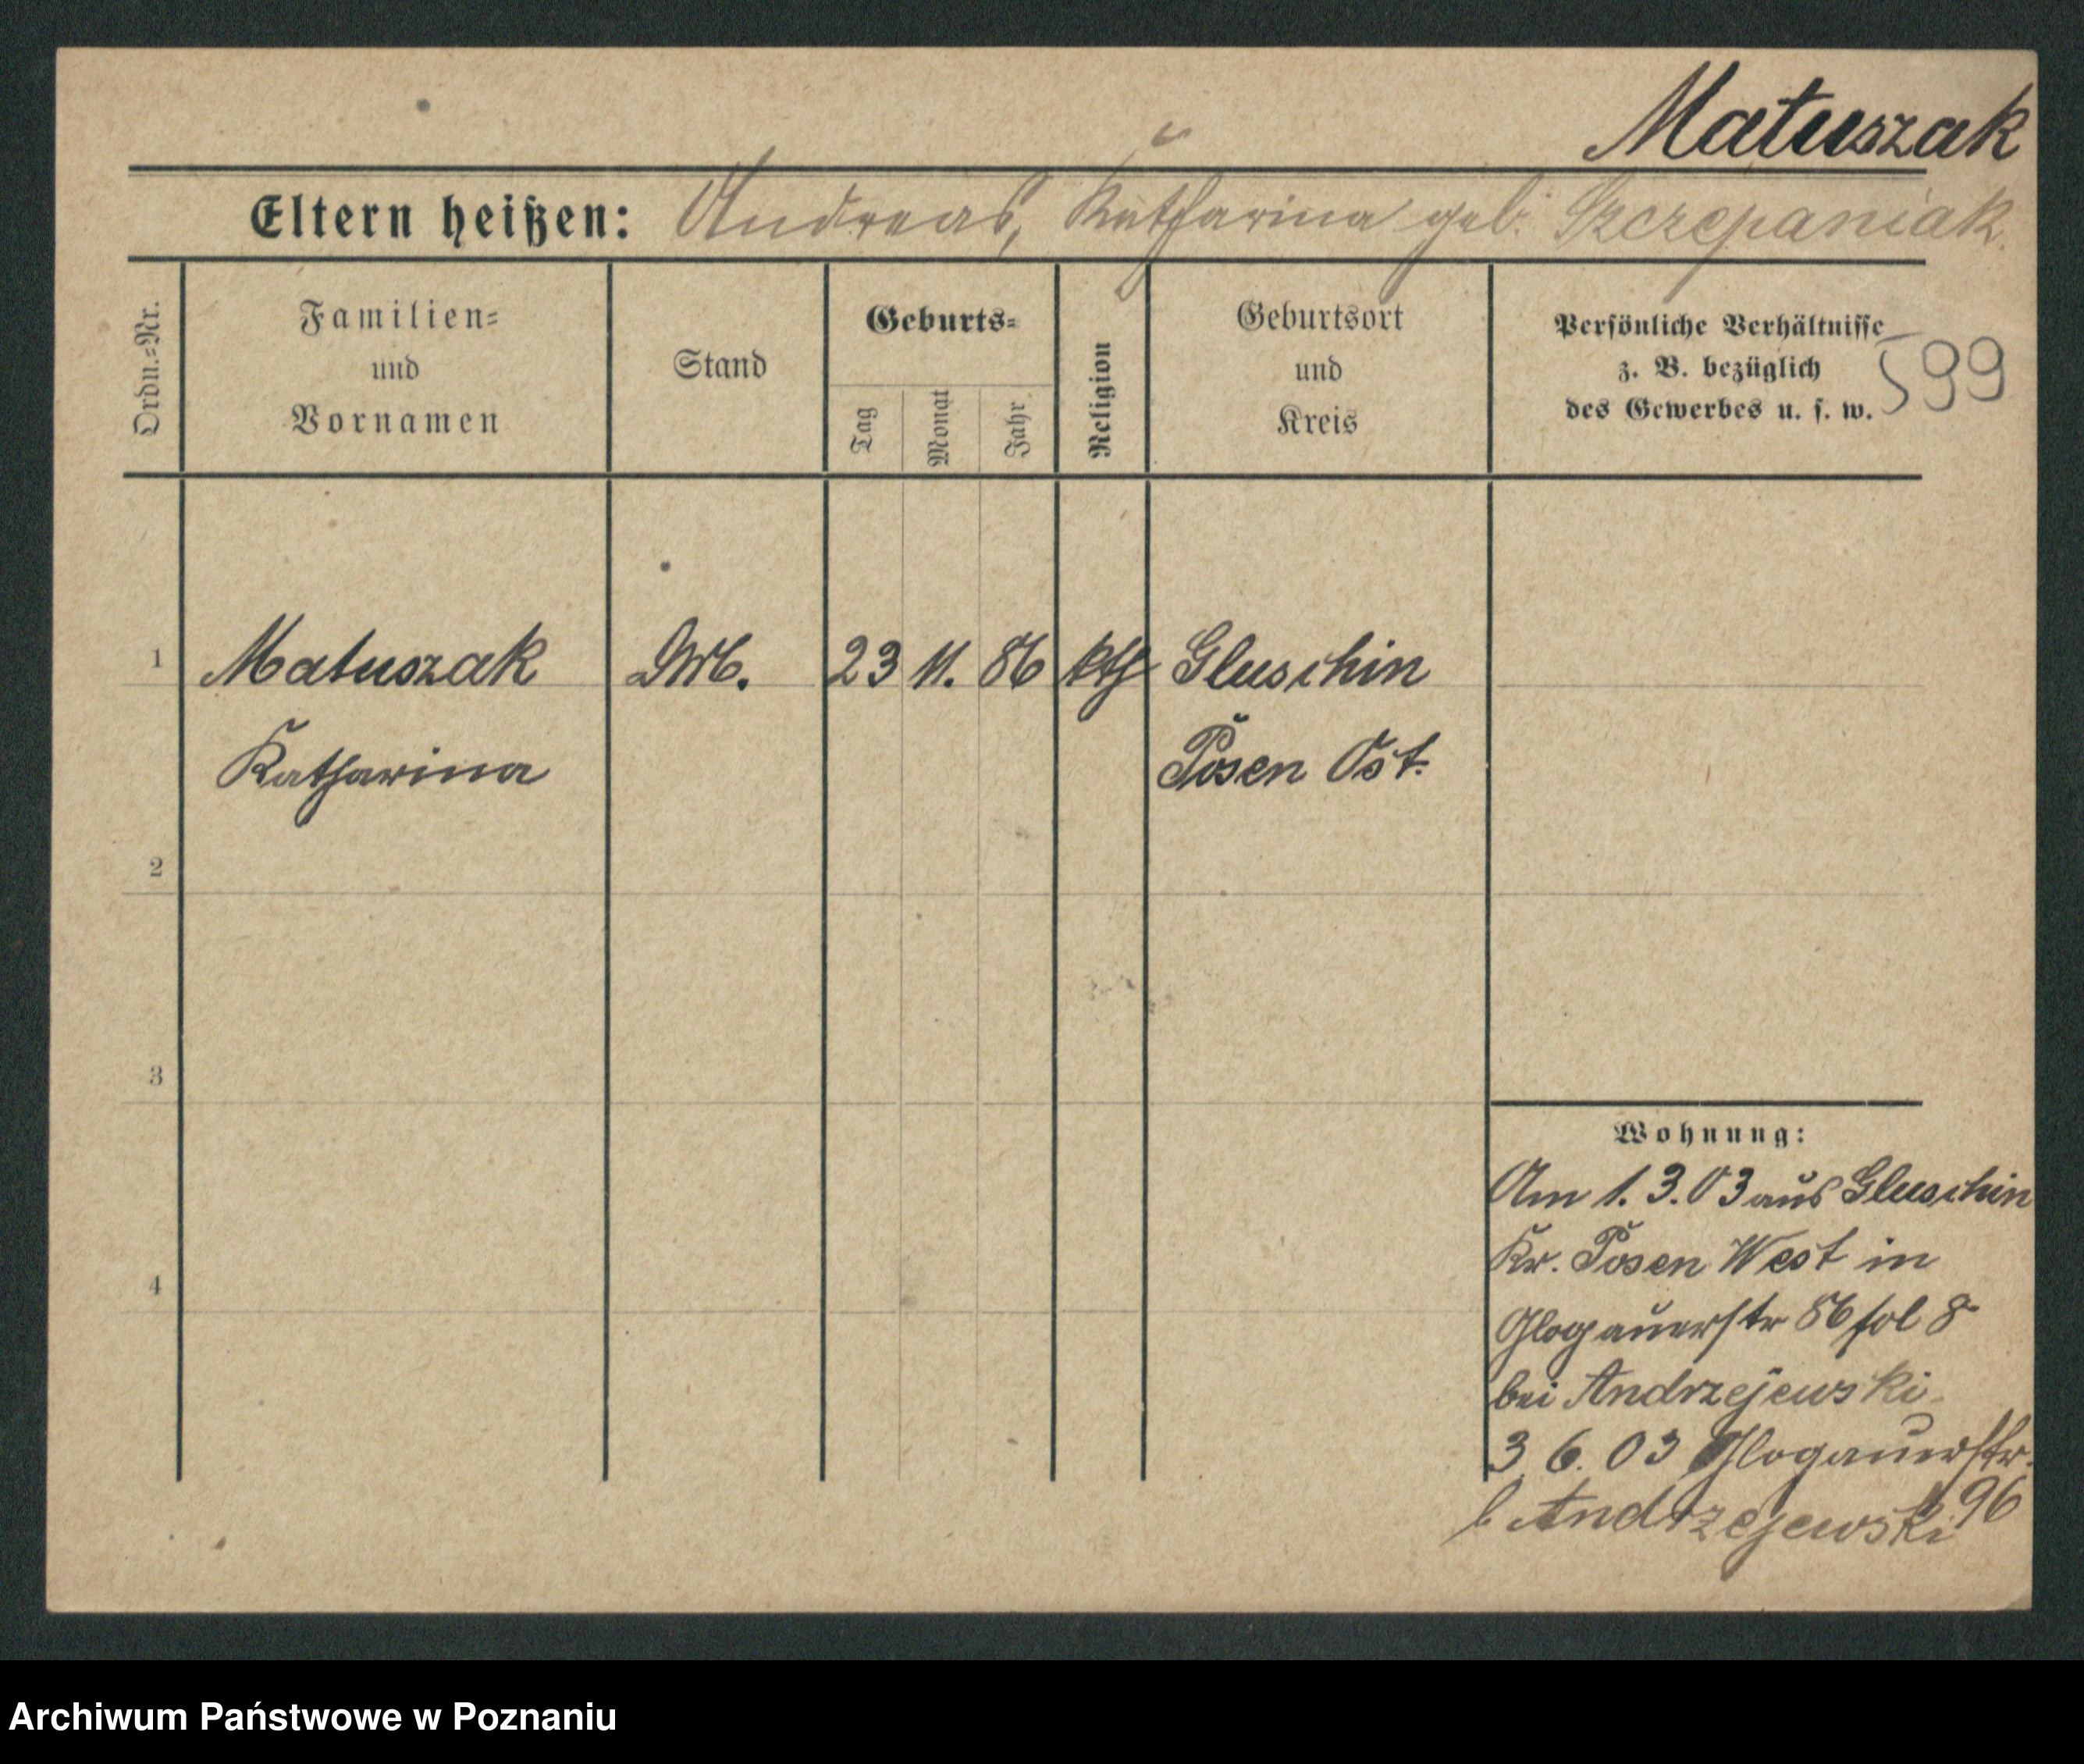 Matuszak
Eltern heißen: Andreas, Katharina geb. Szczepaniak
Ordn.=Nr.
Familien=
und
Vornamen
Stand
Geburts=
Tag
Monat
Jahr
Religion
Geburtsort
und
Kreis
Persönliche Verhältnisse
z. B. bezüglich
des Gewerbes u. s. w.
599
1 Matuszak 23 11. 86 kth Gluschin
Katharina Posen Ost.
2
3
4
Wohnung:
Am 1.3.03 aus Gluschin
Kr. Posen West in
Glogauerstr 86 fol 8
bei Andrzejewski
3 6. 03 Glogauerstr.
96
b Andrzejewski
Archiwum Państwowe w Poznaniu